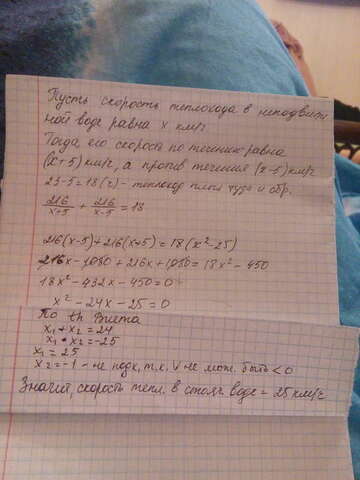 Пусть скорость теплохода в неподвиж
ной воде равна x км/ч
Тогда его скорость по течению равна
(x+5) км/ч, а против течения (x-5) км/ч
23-5=18(ч) - теплоход плыл туда и обр.
216/x+5 + 216/x-5 = 18
216(x-5)+216(x+5)=18(x²-25)
216x-1080+216x+1080=18x²-450
18x²-432x-450=0
x²-24x-25=0
По th Виета
x₁+x₂=24
x₁•x₂=-25
x₁=25
x₂=-1 - не подх, т.к. V не мож. быть <0
Значит, скорость тепл. в стояч. воде = 25 км/ч